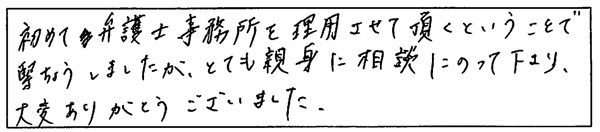 初めて弁護士事務所を理用させて頂くということで
緊ちょうしましたが、とても親身に相談にのって下さり、
大変ありがとうございました。